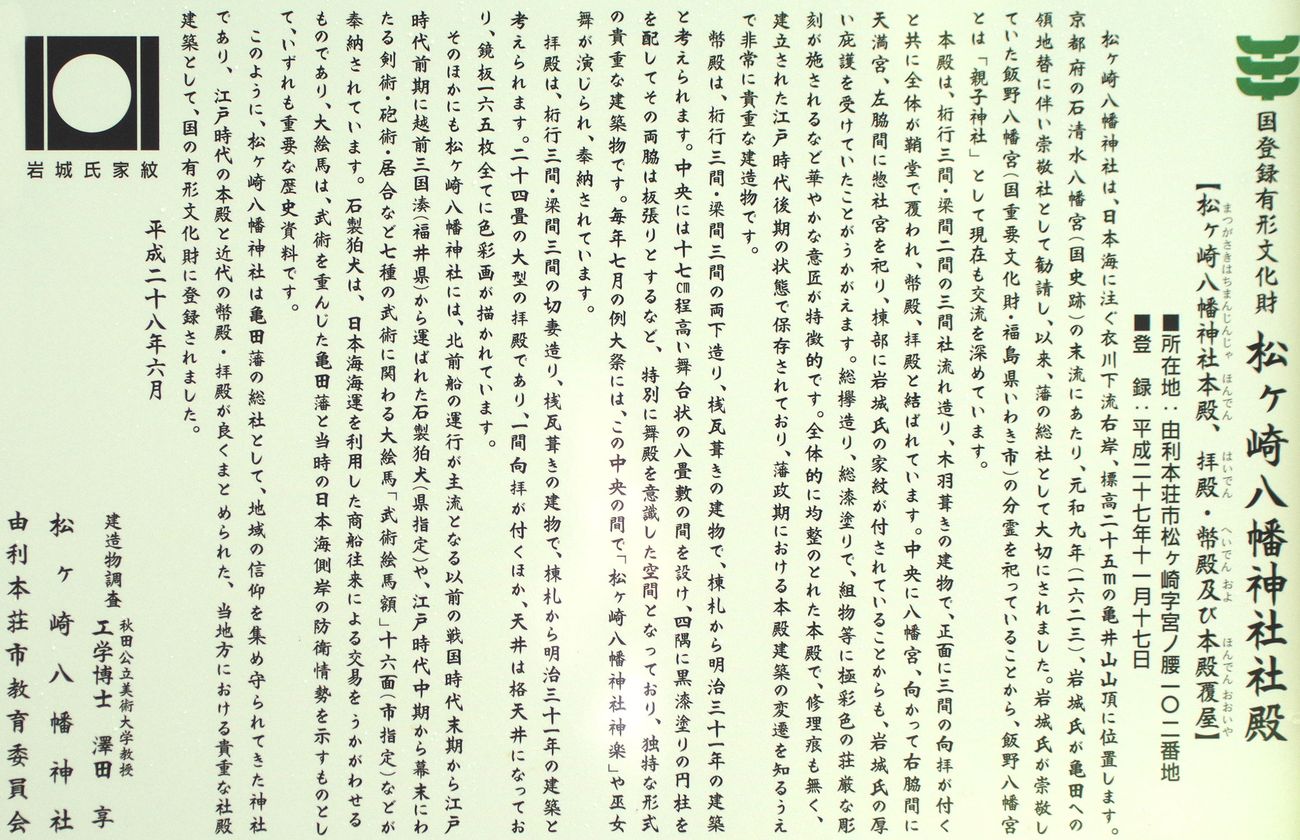 国登録有形文化財 松ヶ崎八幡神社社殿
【松ヶ崎八幡神社本殿、拝殿・幣殿及び本殿覆屋】
まつがさきはちまんじんじゃ ほんでん はいでん へいでん およ ほんでん おおいや
■所在地:由利本荘市松ヶ崎字宮ノ腰一〇二番地
■登 録:平成二十七年十一月十七日
松ヶ崎八幡神社は、日本海に注ぐ衣川下流右岸、標高二十五mの亀井山山頂に位置します。
京都府の石清水八幡宮(国史跡)の末流にあたり、元和九年(一六二三)、岩城氏が亀田への
領地替に伴い崇敬社として勧請し、以来、藩の総社として大切にされました。岩城氏が崇敬し
ていた飯野八幡宮(国重要文化財・福島県いわき市)の分霊を祀っていることから、飯野八幡宮
とは「親子神社」として現在も交流を深めています。
本殿は、桁行三間・梁間二間の三間社流れ造り、木羽葺きの建物で、正面に三間の向拝が付く
と共に全体が鞘堂で覆われ、幣殿、拝殿と結ばれています。中央に八幡宮、向かって右脇間に
天満宮、左脇間に惣社宮を祀り、棟部に岩城氏の家紋が付されていることからも、岩城氏の厚
い庇護を受けていたことがうかがえます。総欅造り、総漆塗りで、組物等に極彩色の荘厳な彫
刻が施されるなど華やかな意匠が特徴的です。全体的に均整のとれた本殿で、修理痕も無く、
建立された江戸時代後期の状態で保存されており、藩政期における本殿建築の変遷を知るうえ
で非常に貴重な建造物です。
幣殿は、桁行三間・梁間三間の両下造り、桟瓦葺きの建物で、棟札から明治三十一年の建築
と考えられます。中央には十七㎝程高い舞台状の八畳敷の間を設け、四隅に黒漆塗りの円柱を
を配してその両脇は板張りとするなど、特別に舞殿を意識した空間となっており、独特な形式
の貴重な建築物です。毎年七月の例大祭には、この中央の間で「松ヶ崎八幡神社神楽」や巫女
舞が演じられ、奉納されています。
拝殿は、桁行三間・梁間三間の切妻造り、桟瓦葺きの建物で、棟札から明治三十一年の建築と
考えられます。二十四畳の大型の拝殿であり、一間向拝が付くほか、天井は格天井になってお
り、鏡板一六五枚全てに色彩画が描かれています。
そのほかにも松ヶ崎八幡神社には、北前船の運行が主流となる以前の戦国時代末期から江戸
時代前期に越前三国湊(福井県)から運ばれた石製狛犬(県指定)や、江戸時代中期から幕末にわ
たる剣術・砲術・居合など七種の武術に関わる大絵馬「武術絵馬額」十六面(市指定)などが
奉納されています。石製狛犬は、日本海海運を利用した商船往来による交易をうかがわせる
ものであり、大絵馬は、武術を重んじた亀田藩と当時の日本海側岸の防衛情勢を示すものとし
て、いずれも重要な歴史資料です。
このように、松ヶ崎八幡神社は亀田藩の総社として、地域の信仰を集め守られてきた神社
であり、江戸時代の本殿と近代の幣殿・拝殿が良くまとめられた、当地方における貴重な社殿
建築として、国の有形文化財に登録されました。
平成二十八年六月
岩城氏家紋
建造物調査 秋田公立美術大学教授
工学博士 澤田 享
松ヶ崎八幡神社
由利本荘市教育委員会